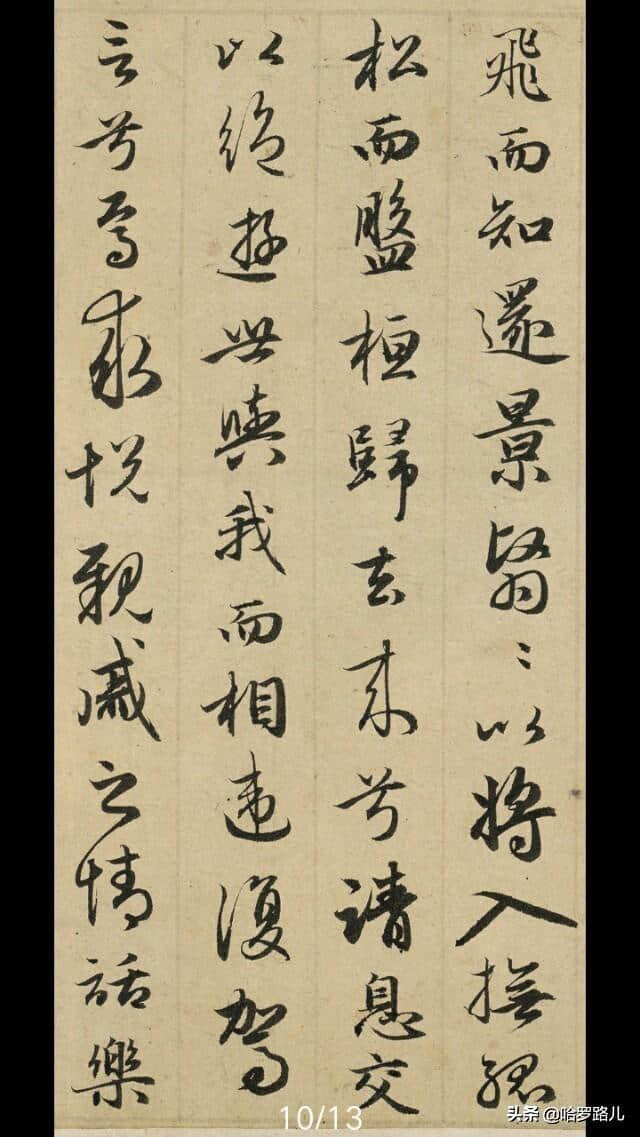 飛而知還景翳〻以將入撫孤
松而盤桓歸去来兮請息交
以絕遊世與我而相違復駕
言兮焉求悅親戚之情話樂
10/13
头条 @哈罗路儿